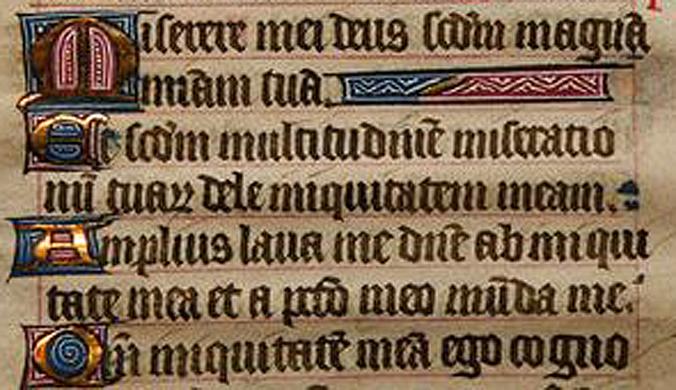 Miserere mei deus scdm magnā
miam tuā.
Et scdm multitudinē miseratio
nū tuaꝝ dele iniquitatem meam.
Amplius laua me dne ab iniqui
tate mea et a pctō meo mūda me.
Qm iniquitatē meā ego cogno